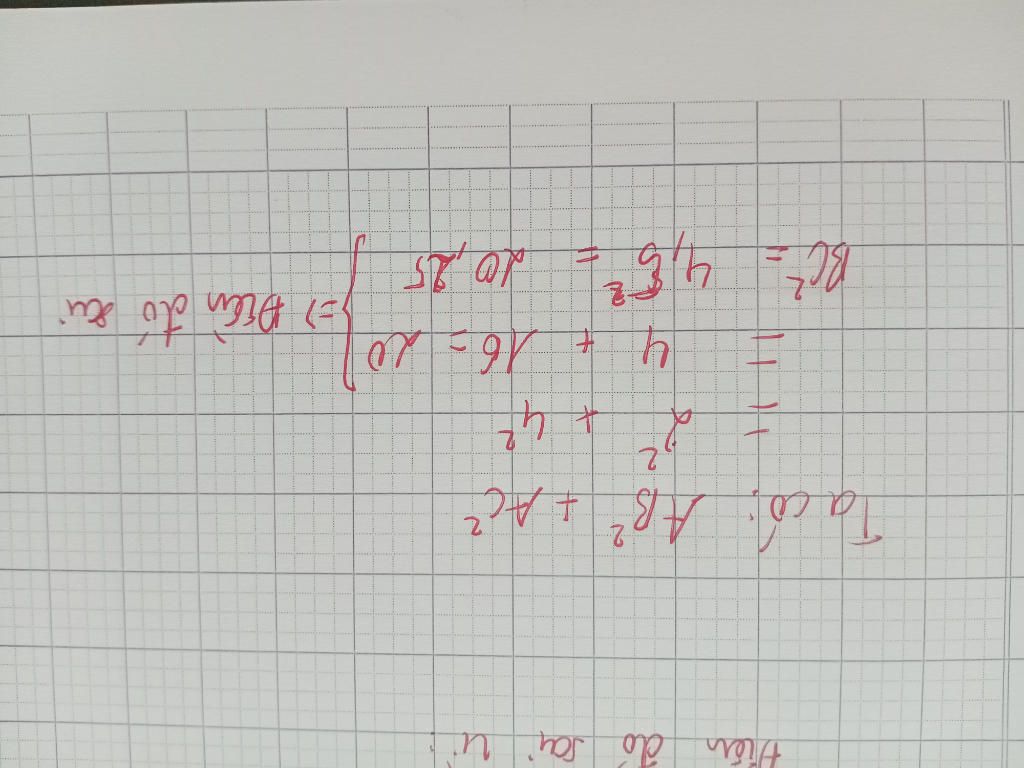 Điều đó sai vì:
Ta có: AB² + AC²
= 2² + 4²
= 4 + 16 = 20
BC² = 4,5² = 20,25
=> Điều đó sai